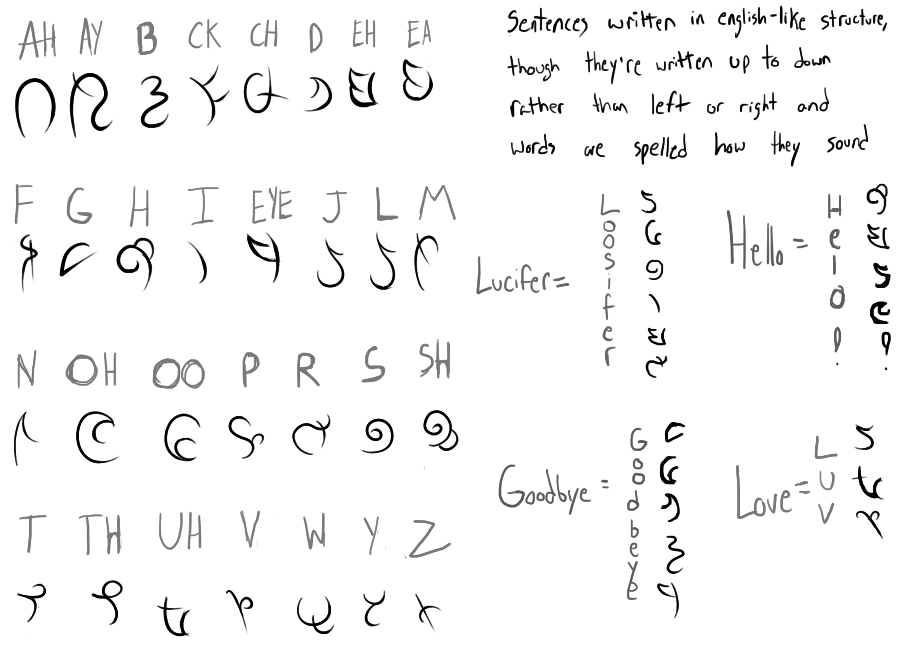 AH AY B CK CH D EH EA
F G H I EYE J L M
N OH OO P R S SH
T TH UH V W Y Z
Sentences written in english-like structure,
though they're written up to down
rather than left or right and
words are spelled how they sound
Lucifer=
L
oo
s
i
f
e
r
Hello=
H
e
l
O
!
Goodbye =
G
oo
d
b
eye
Love=
L
U
V